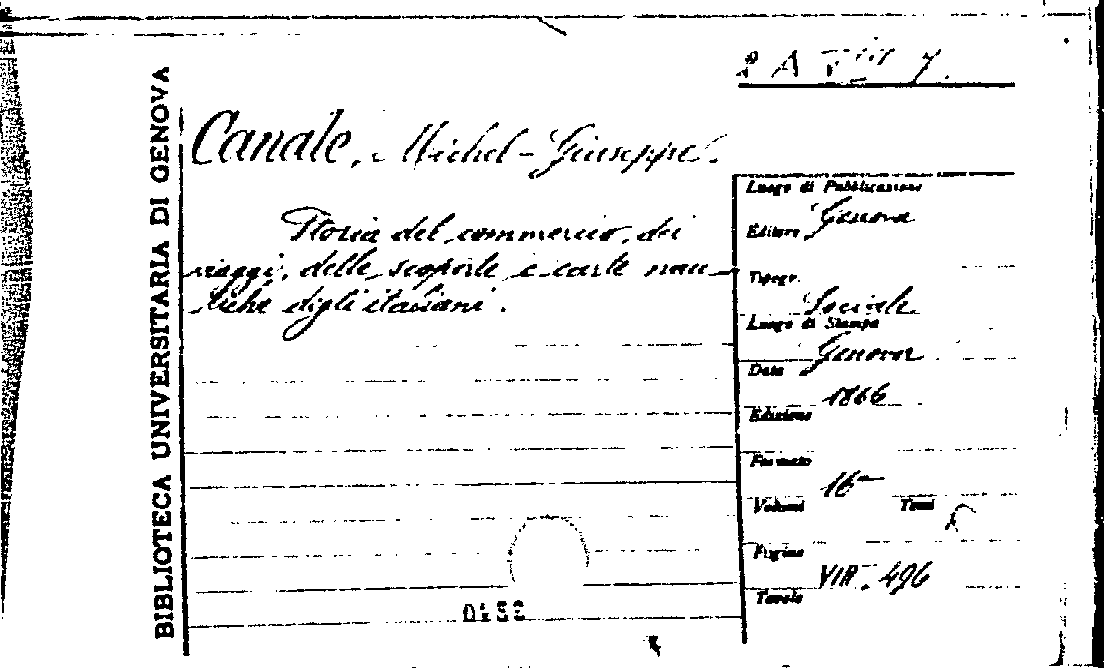 2 A VIII 7.
BIBLIOTECA UNIVERSITARIA DI GENOVA
Canale, Michel-Giuseppe.
Storia del commercio, dei
viaggi, delle scoperte e carte nau-
tiche degli italiani.
Luogo di Pubblicazione
Genova
Editore
Tipogr.
Sociale
Luogo di Stampa
Genova
Data
1866
Edizione
Formato
16
Volumi Tomi
Pagine
VIII. 496
Tavole